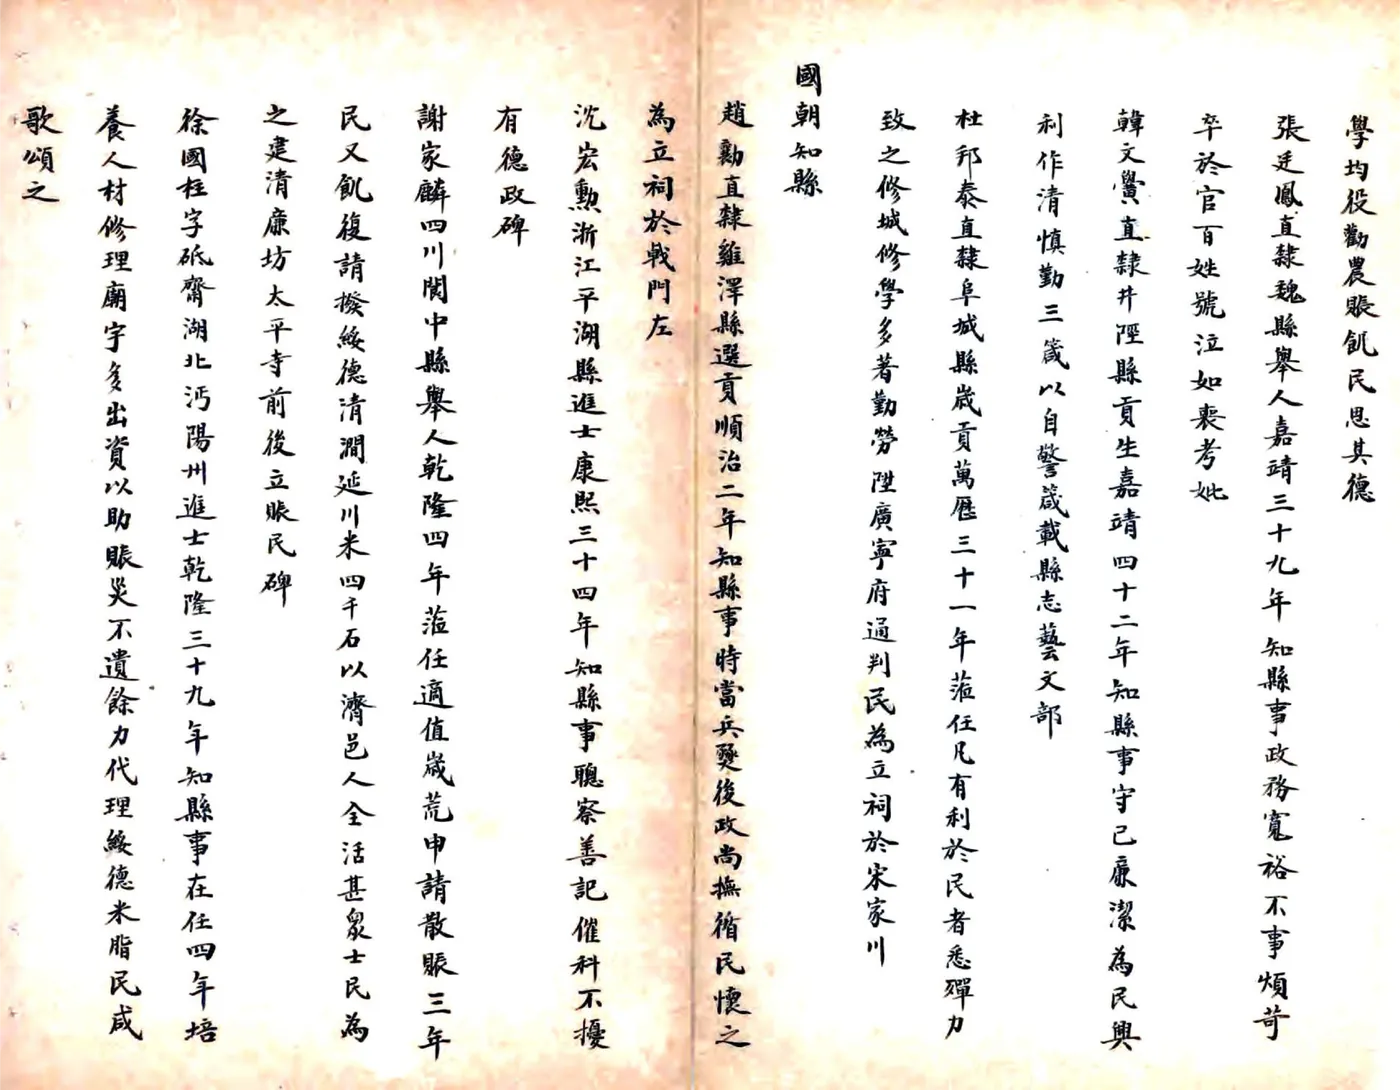 學均役勸農賑飢民思其德
張廷鳳直隸魏縣舉人嘉靖三十九年知縣事政務寬裕不事煩苛
卒於官百姓號泣如喪考妣
韓文黌直隸井陘縣貢生嘉靖四十二年知縣事守己廉潔為民興
利作清慎勤三箴以自警箴載縣志藝文部
杜邦泰直隸阜城縣歲貢萬曆三十一年蒞任凡有利於民者悉殫力
致之修城修學多著勤勞陞廣寧府通判民為立祠於宋家川
國朝知縣
趙勷直隸雞澤縣選貢順治二年知縣事時當兵燹後政尚撫循民懷之
為立祠於戟門左
沈宏勳浙江平湖縣進士康熙三十四年知縣事聰察善記催科不擾
有德政碑
謝家麟四川閬中縣舉人乾隆四年蒞任適值歲荒申請散賑三年
民又飢復請撥綏德清澗延川米四千石以濟邑人全活甚眾士民為
之建清廉坊太平寺前後立賑民碑
徐國柱字砥齋湖北沔陽州進士乾隆三十九年知縣事在任四年培
養人材修理廟宇多出資以助賑災不遺餘力代理綏德米脂民咸
歌頌之